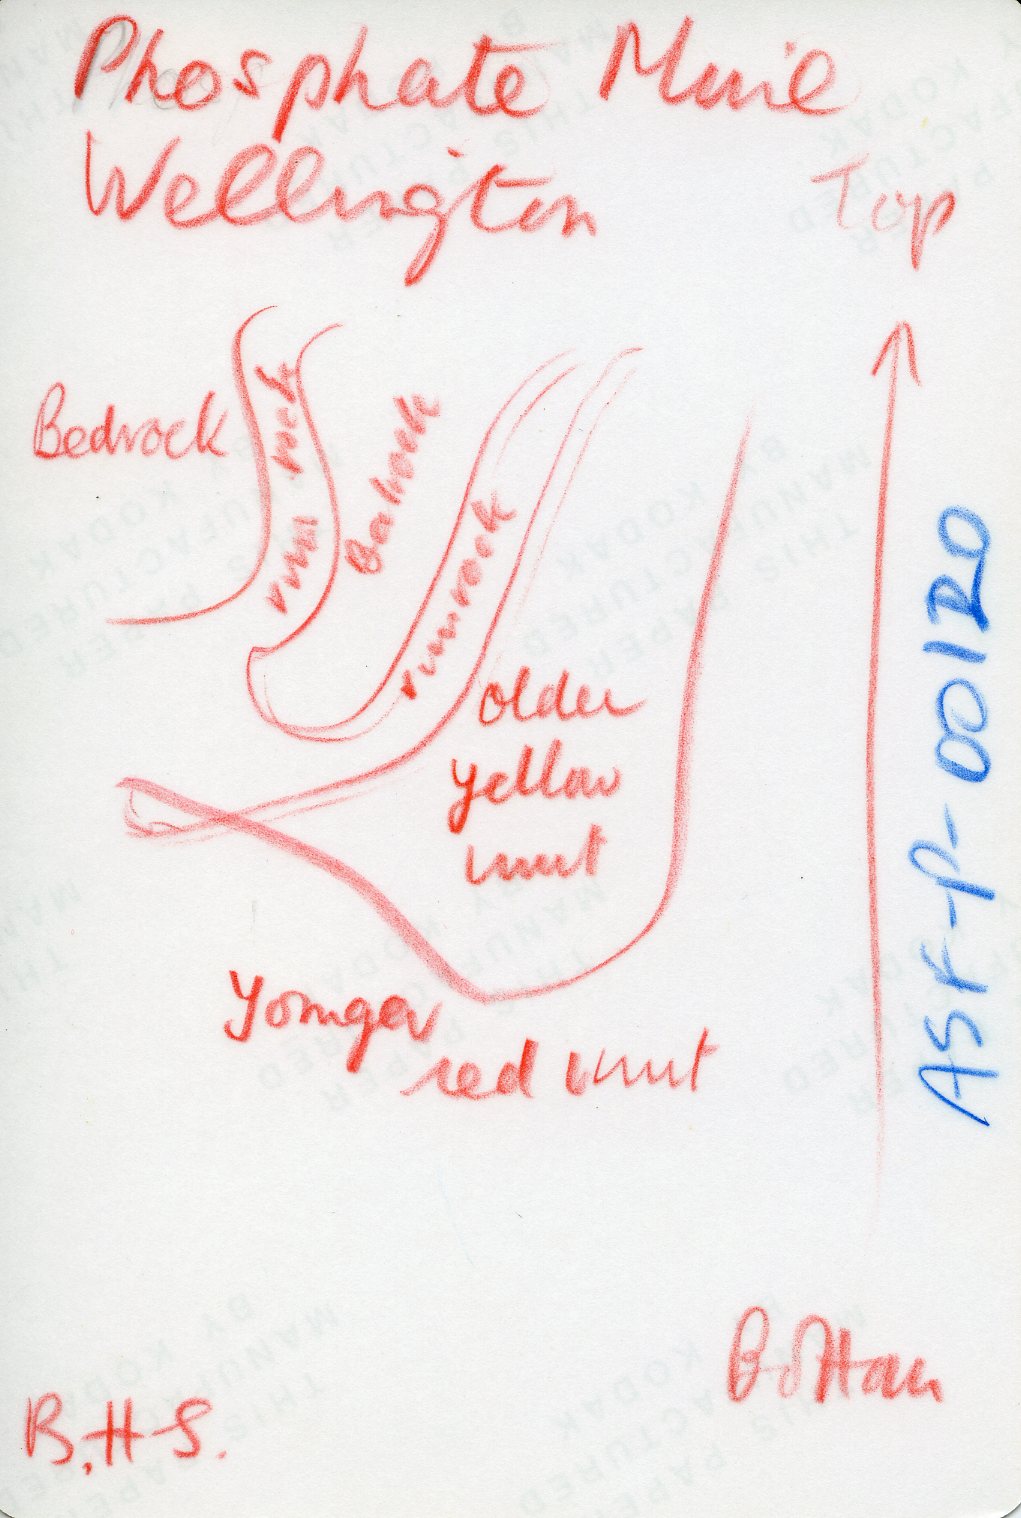 Phosphate Mine
Wellington
Top
Bedrock
rimrock
Bedrock
rimrock
older
yellow
unit
Younger
red unit
ASF-P-00120
Bottom
B.H.S.
THIS PAPER
MANUFACTURED
BY KODAK